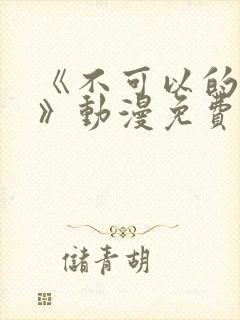 《不可以的
》動漫免費
儲青胡